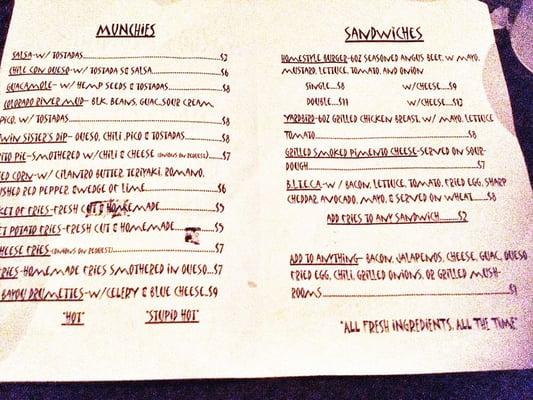 MUNCHIES
SALSA-W/ TOSTADAS $3
CHILE CON QUESO-W/ TOSTADA & SALSA $6
GUACAMOLE- W/ HEMP SEEDS & TOSTADAS $8
COLORADO RIVER MUD- BLK. BEANS, GUAC, SOUR CREAM,
PICO, W/ TOSTADAS $8
WIN SISTER'S DIP- QUESO, CHILI, PICO & TOSTADAS $8
ITO PIE-SMOTHERED W/CHILI & CHEESE (ONIONS ON REQUEST) $7
ED CORN-W/ CILANTRO BUTTER, TERIYAKI, ROMANO,
USHED RED PEPPER, & WEDGE OF LIME $6
KET OF FRIES-FRESH CUT & HOMEMADE $5
ET POTATO FRIES-FRESH CUT & HOMEMADE $5
CHEESE FRIES (ONIONS ON REQUEST) $7
FRIES-HOMEMADE FRIES SMOTHERED IN QUESO $7
BAYOU DRUMETTES-W/CELERY & BLUE CHEESE $9
"HOT" "STUPID HOT"
SANDWICHES
HOMESTYLE BURGER-6OZ SEASONED ANGUS BEEF, W/ MAYO,
MUSTARD, LETTUCE, TOMATO, AND ONION
SINGLE $8 W/CHEESE $9
DOUBLE $11 W/CHEESE $13
YARDBIRD-6OZ GRILLED CHICKEN BREAST, W/ MAYO, LETTUCE
TOMATO $8
GRILLED SMOKED PIMENTO CHEESE-SERVED ON SOUR-
DOUGH $7
B.L.T.E.C.A-W/ BACON, LETTUCE, TOMATO, FRIED EGG, SHARP
CHEDDAR, AVOCADO, MAYO, & SERVED ON WHEAT $8
ADD FRIES TO ANY SANDWICH $2
ADD TO ANYTHING- BACON, JALAPENOS, CHEESE, GUAC, QUESO
FRIED EGG, CHILI, GRILLED ONIONS, OR GRILLED MUSH-
ROOMS $1
"ALL FRESH INGREDIENTS, ALL THE TIME"